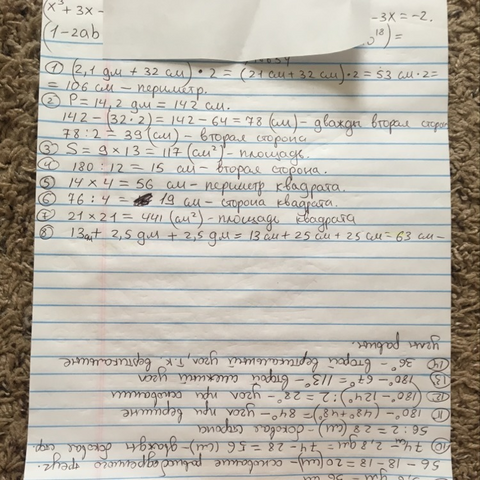 x³ + 3x -
- 3x = -2.
(1 - 2ab
¹⁸) =
① (2,1 дм + 32 см) • 2 = (21 см + 32 см) • 2 = 53 см • 2 =
= 106 см - периметр.
② P = 14,2 дм = 142 см.
142 - (32 • 2) = 142 - 64 = 78 (см) - дважды вторая сторон
78 : 2 = 39 (см) - вторая сторона
③ S = 9 × 13 = 117 (см²) - площадь.
④ 180 : 12 = 15 см - вторая сторона.
⑤ 14 × 4 = 56 см - периметр квадрата.
⑥ 76 : 4 = 19 см - сторона квадрата.
⑦ 21 × 21 = 441 (см²) - площадь квадрата
⑧ 13 см + 2,5 дм + 2,5 дм = 13 см + 25 см + 25 см = 63 см -
56 - 18 - 18 = 20 (см) - основание равнобедренного треуг.
⑩ 2,8 дм = 74 - 28 = 56 (см) - дважды боковая стор
56 : 2 = 28 (см) боковая сторона
⑪ 180° - (48° + 48°) = 84° - угол при вершине
⑫ (180° - 124°) : 2 = 28° - угол при основании
⑬ 180° - 67° = 113° - второй смежный угол
⑭ 36° - второй вертикальный угол, т.к. вертикальные
углы равны.